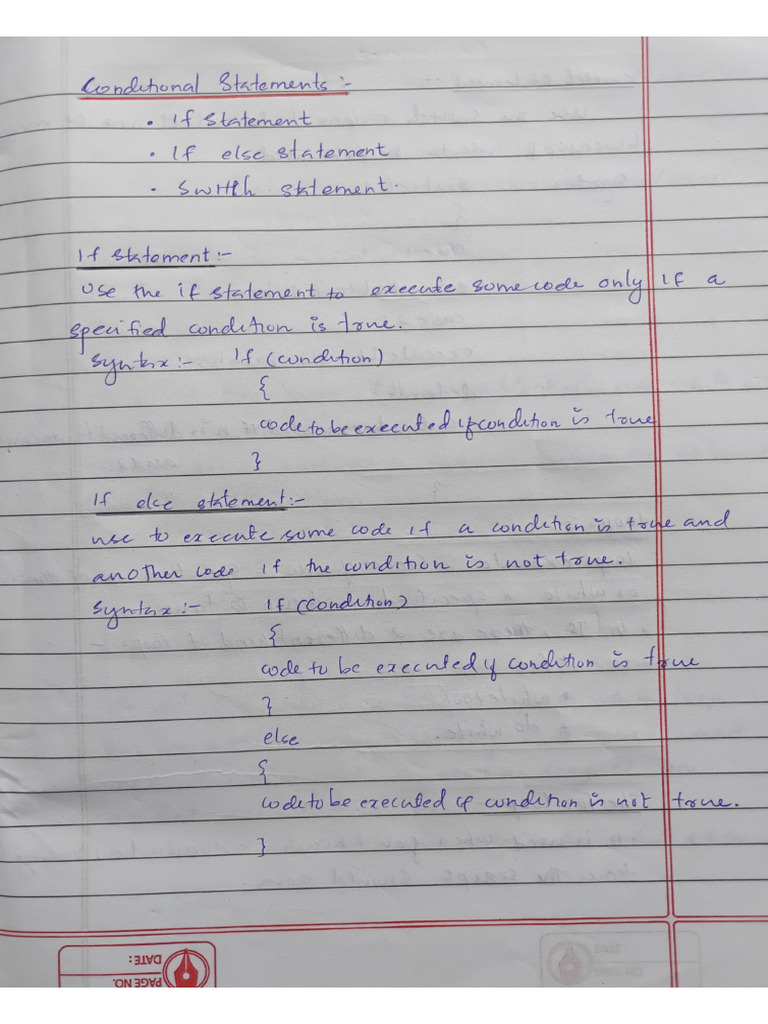 Conditional Statements :-
• If Statement
• If else statement
• Switch statement.
If statement :-
Use the if statement to execute some code only if a
specified condition is true.
Syntax :- If (condition)
{
code to be executed if condition is true
}
If else statement :-
use to execute some code if a condition is true and
another code if the condition is not true.
Syntax :- If (condition)
{
code to be executed if condition is true
}
else
{
code to be executed if condition is not true.
}
DATE :
PAGE NO.